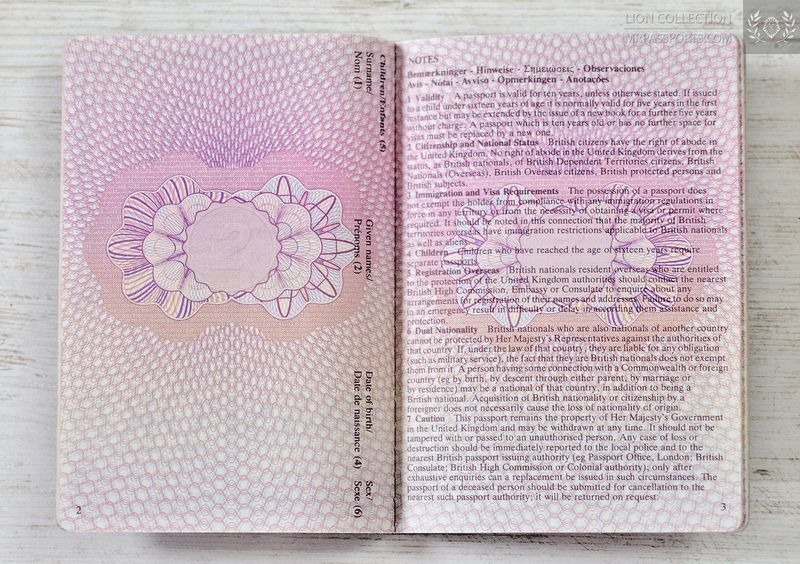 LION COLLECTION
MRPASSPORTS.COM
Children/Enfants (5)
Surname/
Nom (1)
Given names/
Prénoms (2)
Date of birth/
Date de naissance (4)
Sex/
Sexe (6)
2
NOTES
Bemærkninger - Hinweise - Σημειώσεις - Observaciones
Avis - Nótaí - Avviso - Opmerkingen - Anotações
1 Validity A passport is valid for ten years, unless otherwise stated. If issued
to a child under sixteen years of age it is normally valid for five years in the first
instance but may be extended by the issue of a new book for a further five years
without charge. A passport which is ten years old or has no further space for
visas must be replaced by a new one.
2 Citizenship and National Status British citizens have the right of abode in
the United Kingdom. No right of abode in the United Kingdom derives from the
status, as British nationals, of British Dependent Territories citizens, British
Nationals (Overseas), British Overseas citizens, British protected persons and
British subjects.
3 Immigration and Visa Requirements The possession of a passport does
not exempt the holder from compliance with any immigration regulations in
force in any territory or from the necessity of obtaining a visa or permit where
required. It should be noted in this connection that the majority of British
territories overseas have immigration restrictions applicable to British nationals
as well as aliens.
4 Children Children who have reached the age of sixteen years require
separate passports.
5 Registration Overseas British nationals resident overseas who are entitled
to the protection of the United Kingdom authorities should contact the nearest
British High Commission, Embassy or Consulate to enquire about any
arrangements for registration of their names and addresses. Failure to do so may
in an emergency result in difficulty or delay in according them assistance and
protection.
6 Dual Nationality British nationals who are also nationals of another country
cannot be protected by Her Majesty's Representatives against the authorities of
that country. If, under the law of that country, they are liable for any obligation
(such as military service), the fact that they are British nationals does not exempt
them from it. A person having some connection with a Commonwealth or foreign
country (eg by birth, by descent through either parent, by marriage or
by residence) may be a national of that country, in addition to being a
British national. Acquisition of British nationality or citizenship by a
foreigner does not necessarily cause the loss of nationality of origin.
7 Caution This passport remains the property of Her Majesty's Government
in the United Kingdom and may be withdrawn at any time. It should not be
tampered with or passed to an unauthorised person. Any case of loss or
destruction should be immediately reported to the local police and to the
nearest British passport issuing authority (eg Passport Office, London; British
Consulate; British High Commission or Colonial authority); only after
exhaustive enquiries can a replacement be issued in such circumstances. The
passport of a deceased person should be submitted for cancellation to the
nearest such passport authority; it will be returned on request.
3